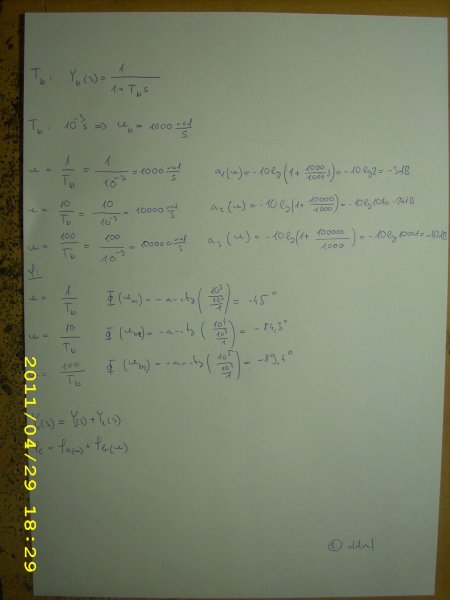 T_b: Y_b(s) = 1 / (1 + T_b s)
T_b: 10^-3 s => ω_b = 1000 rad/s
ω = 1/T_b = 1/10^-3 = 1000 rad/s   a_1(ω) = -10log(1 + 1000/1000) = -10log2 = -3dB
ω = 10/T_b = 10/10^-3 = 10000 rad/s   a_2(ω) = -10log(1 + 10000/1000) =
ω = 100/T_b = 100/10^-3 = 100000 rad/s   a_3(ω) = -10log(1 + 100000/1000) = -10log10001 = -40dB
φ:
ω = 1/T_b   Φ(ω_b1) = -arctg(10^3 / (10^3/1)) = -45°
ω = 10/T_b   Φ(ω_b2) = -arctg = -84,3°
= 100/T_b   Φ(ω_b3) = -arctg(10^5 / (10^3/1)) = -89,4°
(s) = Y(s) + Y(s)
= φ_a(ω) + φ_b(ω)
©
2011/04/29 18:29